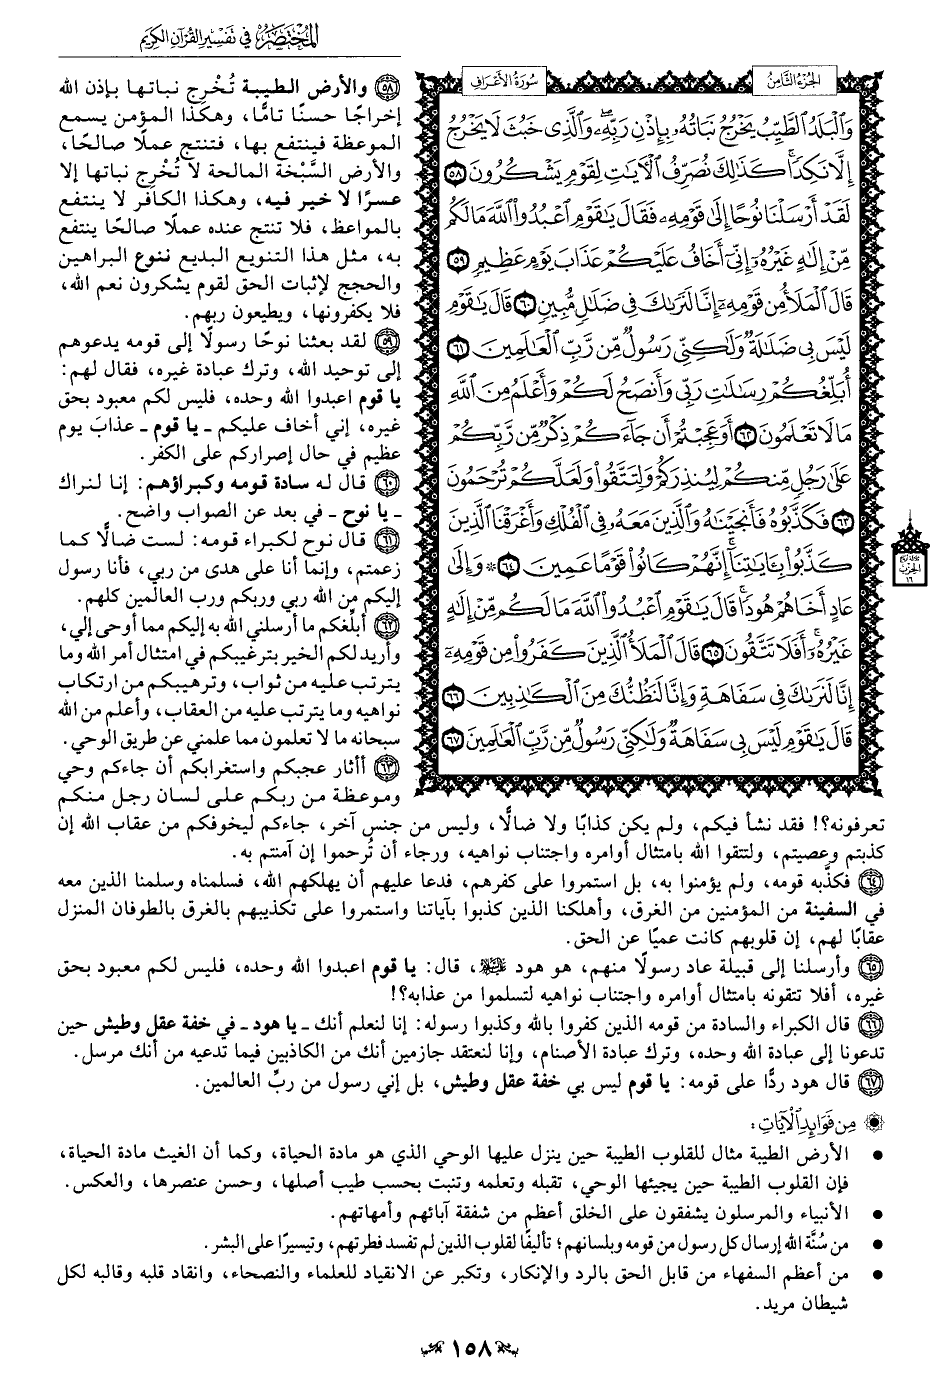 المختصر في تفسير القرآن الكريم
الجزء الثامن
سورة الأعراف
وَٱلْبَلَدُ ٱلطَّيِّبُ يَخْرُجُ نَبَاتُهُۥ بِإِذْنِ رَبِّهِۦۖ وَٱلَّذِى خَبُثَ لَا يَخْرُجُ
إِلَّا نَكِدًاۚ كَذَٰلِكَ نُصَرِّفُ ٱلْءَايَٰتِ لِقَوْمٍ يَشْكُرُونَ ٥٨
لَقَدْ أَرْسَلْنَا نُوحًا إِلَىٰ قَوْمِهِۦ فَقَالَ يَٰقَوْمِ ٱعْبُدُوا۟ ٱللَّهَ مَا لَكُم
مِّنْ إِلَٰهٍ غَيْرُهُۥٓ إِنِّىٓ أَخَافُ عَلَيْكُمْ عَذَابَ يَوْمٍ عَظِيمٍ ٥٩
قَالَ ٱلْمَلَأُ مِن قَوْمِهِۦٓ إِنَّا لَنَرَىٰكَ فِى ضَلَٰلٍ مُّبِينٍ ٦٠ قَالَ يَٰقَوْمِ
لَيْسَ بِى ضَلَٰلَةٌ وَلَٰكِنِّى رَسُولٌ مِّن رَّبِّ ٱلْعَٰلَمِينَ ٦١
أُبَلِّغُكُمْ رِسَٰلَٰتِ رَبِّى وَأَنصَحُ لَكُمْ وَأَعْلَمُ مِنَ ٱللَّهِ
مَا لَا تَعْلَمُونَ ٦٢ أَوَعَجِبْتُمْ أَن جَآءَكُمْ ذِكْرٌ مِّن رَّبِّكُمْ
عَلَىٰ رَجُلٍ مِّنكُمْ لِيُنذِرَكُمْ وَلِتَتَّقُوا۟ وَلَعَلَّكُمْ تُرْحَمُونَ
٦٣ فَكَذَّبُوهُ فَأَنجَيْنَٰهُ وَٱلَّذِينَ مَعَهُۥ فِى ٱلْفُلْكِ وَأَغْرَقْنَا ٱلَّذِينَ
كَذَّبُوا۟ بِـَٔايَٰتِنَآۚ إِنَّهُمْ كَانُوا۟ قَوْمًا عَمِينَ ٦٤ ۞ وَإِلَىٰ
عَادٍ أَخَاهُمْ هُودًاۚ قَالَ يَٰقَوْمِ ٱعْبُدُوا۟ ٱللَّهَ مَا لَكُم مِّنْ إِلَٰهٍ
غَيْرُهُۥٓۚ أَفَلَا تَتَّقُونَ ٦٥ قَالَ ٱلْمَلَأُ ٱلَّذِينَ كَفَرُوا۟ مِن قَوْمِهِۦٓ
إِنَّا لَنَرَىٰكَ فِى سَفَاهَةٍ وَإِنَّا لَنَظُنُّكَ مِنَ ٱلْكَٰذِبِينَ ٦٦
قَالَ يَٰقَوْمِ لَيْسَ بِى سَفَاهَةٌ وَلَٰكِنِّى رَسُولٌ مِّن رَّبِّ ٱلْعَٰلَمِينَ ٦٧
الحزب
١٦
٥٨ والأرض الطيبة تُخْرِج نباتها بإذن الله
إخراجًا حسنًا تامًّا، وهكذا المؤمن يسمع
الموعظة فينتفع بها، فتنتج عملًا صالحًا،
والأرض السَّبْخَة المالحة لا تُخْرِج نباتها إلا
عسرًا لا خير فيه، وهكذا الكافر لا ينتفع
بالمواعظ، فلا تنتج عنده عملًا صالحًا ينتفع
به، مثل هذا التنويع البديع ننوع البراهين
والحجج لإثبات الحق لقوم يشكرون نعم الله،
فلا يكفرونها، ويطيعون ربهم.
٥٩ لقد بعثنا نوحًا رسولًا إلى قومه يدعوهم
إلى توحيد الله، وترك عبادة غيره، فقال لهم:
يا قوم اعبدوا الله وحده، فليس لكم معبود بحق
غيره، إني أخاف عليكم - يا قوم - عذابَ يوم
عظيم في حال إصراركم على الكفر.
٦٠ قال له سادة قومه وكبراؤهم: إنا لنراك
- يا نوح - في بعد عن الصواب واضح.
٦١ قال نوح لكبراء قومه: لست ضالًّا كما
زعمتم، وإنما أنا على هدى من ربي، فأنا رسول
إليكم من الله ربي وربكم ورب العالمين كلهم.
٦٢ أبلِّغكم ما أرسلني الله به إليكم مما أوحى إلي،
وأريد لكم الخير بترغيبكم في امتثال أمر الله وما
يترتب عليه من ثواب، وترهيبكم من ارتكاب
نواهيه وما يترتب عليه من العقاب، وأعلم من الله
سبحانه ما لا تعلمون مما علمني عن طريق الوحي.
٦٣ أأثار عجبكم واستغرابكم أن جاءكم وحي
وموعظة من ربكم على لسان رجل منكم
تعرفونه؟! فقد نشأ فيكم، ولم يكن كذابًا ولا ضالًّا، وليس من جنس آخر، جاءكم ليخوفكم من عقاب الله إن
كذبتم وعصيتم، ولتتقوا الله بامتثال أوامره واجتناب نواهيه، ورجاء أن تُرحموا إن آمنتم به.
٦٤ فكذَّبه قومه، ولم يؤمنوا به، بل استمروا على كفرهم، فدعا عليهم أن يهلكهم الله، فسلمناه وسلمنا الذين معه
في السفينة من المؤمنين من الغرق، وأهلكنا الذين كذبوا بآياتنا واستمروا على تكذيبهم بالغرق بالطوفان المنزل
عقابًا لهم، إن قلوبهم كانت عميًا عن الحق.
٦٥ وأرسلنا إلى قبيلة عاد رسولًا منهم، هو هود عليه السلام، قال: يا قوم اعبدوا الله وحده، فليس لكم معبود بحق
غيره، أفلا تتقونه بامتثال أوامره واجتناب نواهيه لتسلموا من عذابه؟!
٦٦ قال الكبراء والسادة من قومه الذين كفروا بالله وكذبوا رسوله: إنا لنعلم أنك - يا هود - في خفة عقل وطيش حين
تدعونا إلى عبادة الله وحده، وترك عبادة الأصنام، وإنا لنعتقد جازمين أنك من الكاذبين فيما تدعيه من أنك مرسل.
٦٧ قال هود ردًّا على قومه: يا قوم ليس بي خفة عقل وطيش، بل إني رسول من ربِّ العالمين.
من فوائد الآيات:
• الأرض الطيبة مثال للقلوب الطيبة حين ينزل عليها الوحي الذي هو مادة الحياة، وكما أن الغيث مادة الحياة،
فإن القلوب الطيبة حين يجيئها الوحي، تقبله وتعلمه وتنبت بحسب طيب أصلها، وحسن عنصرها، والعكس.
• الأنبياء والمرسلون يشفقون على الخلق أعظم من شفقة آبائهم وأمهاتهم.
• من سُنَّة الله إرسال كل رسول من قومه وبلسانهم؛ تأليفًا لقلوب الذين لم تفسد فطرتهم، وتيسيرًا على البشر.
• من أعظم السفهاء من قابل الحق بالرد والإنكار، وتكبر عن الانقياد للعلماء والنصحاء، وانقاد قلبه وقالبه لكل
شيطان مريد.
١٥٨